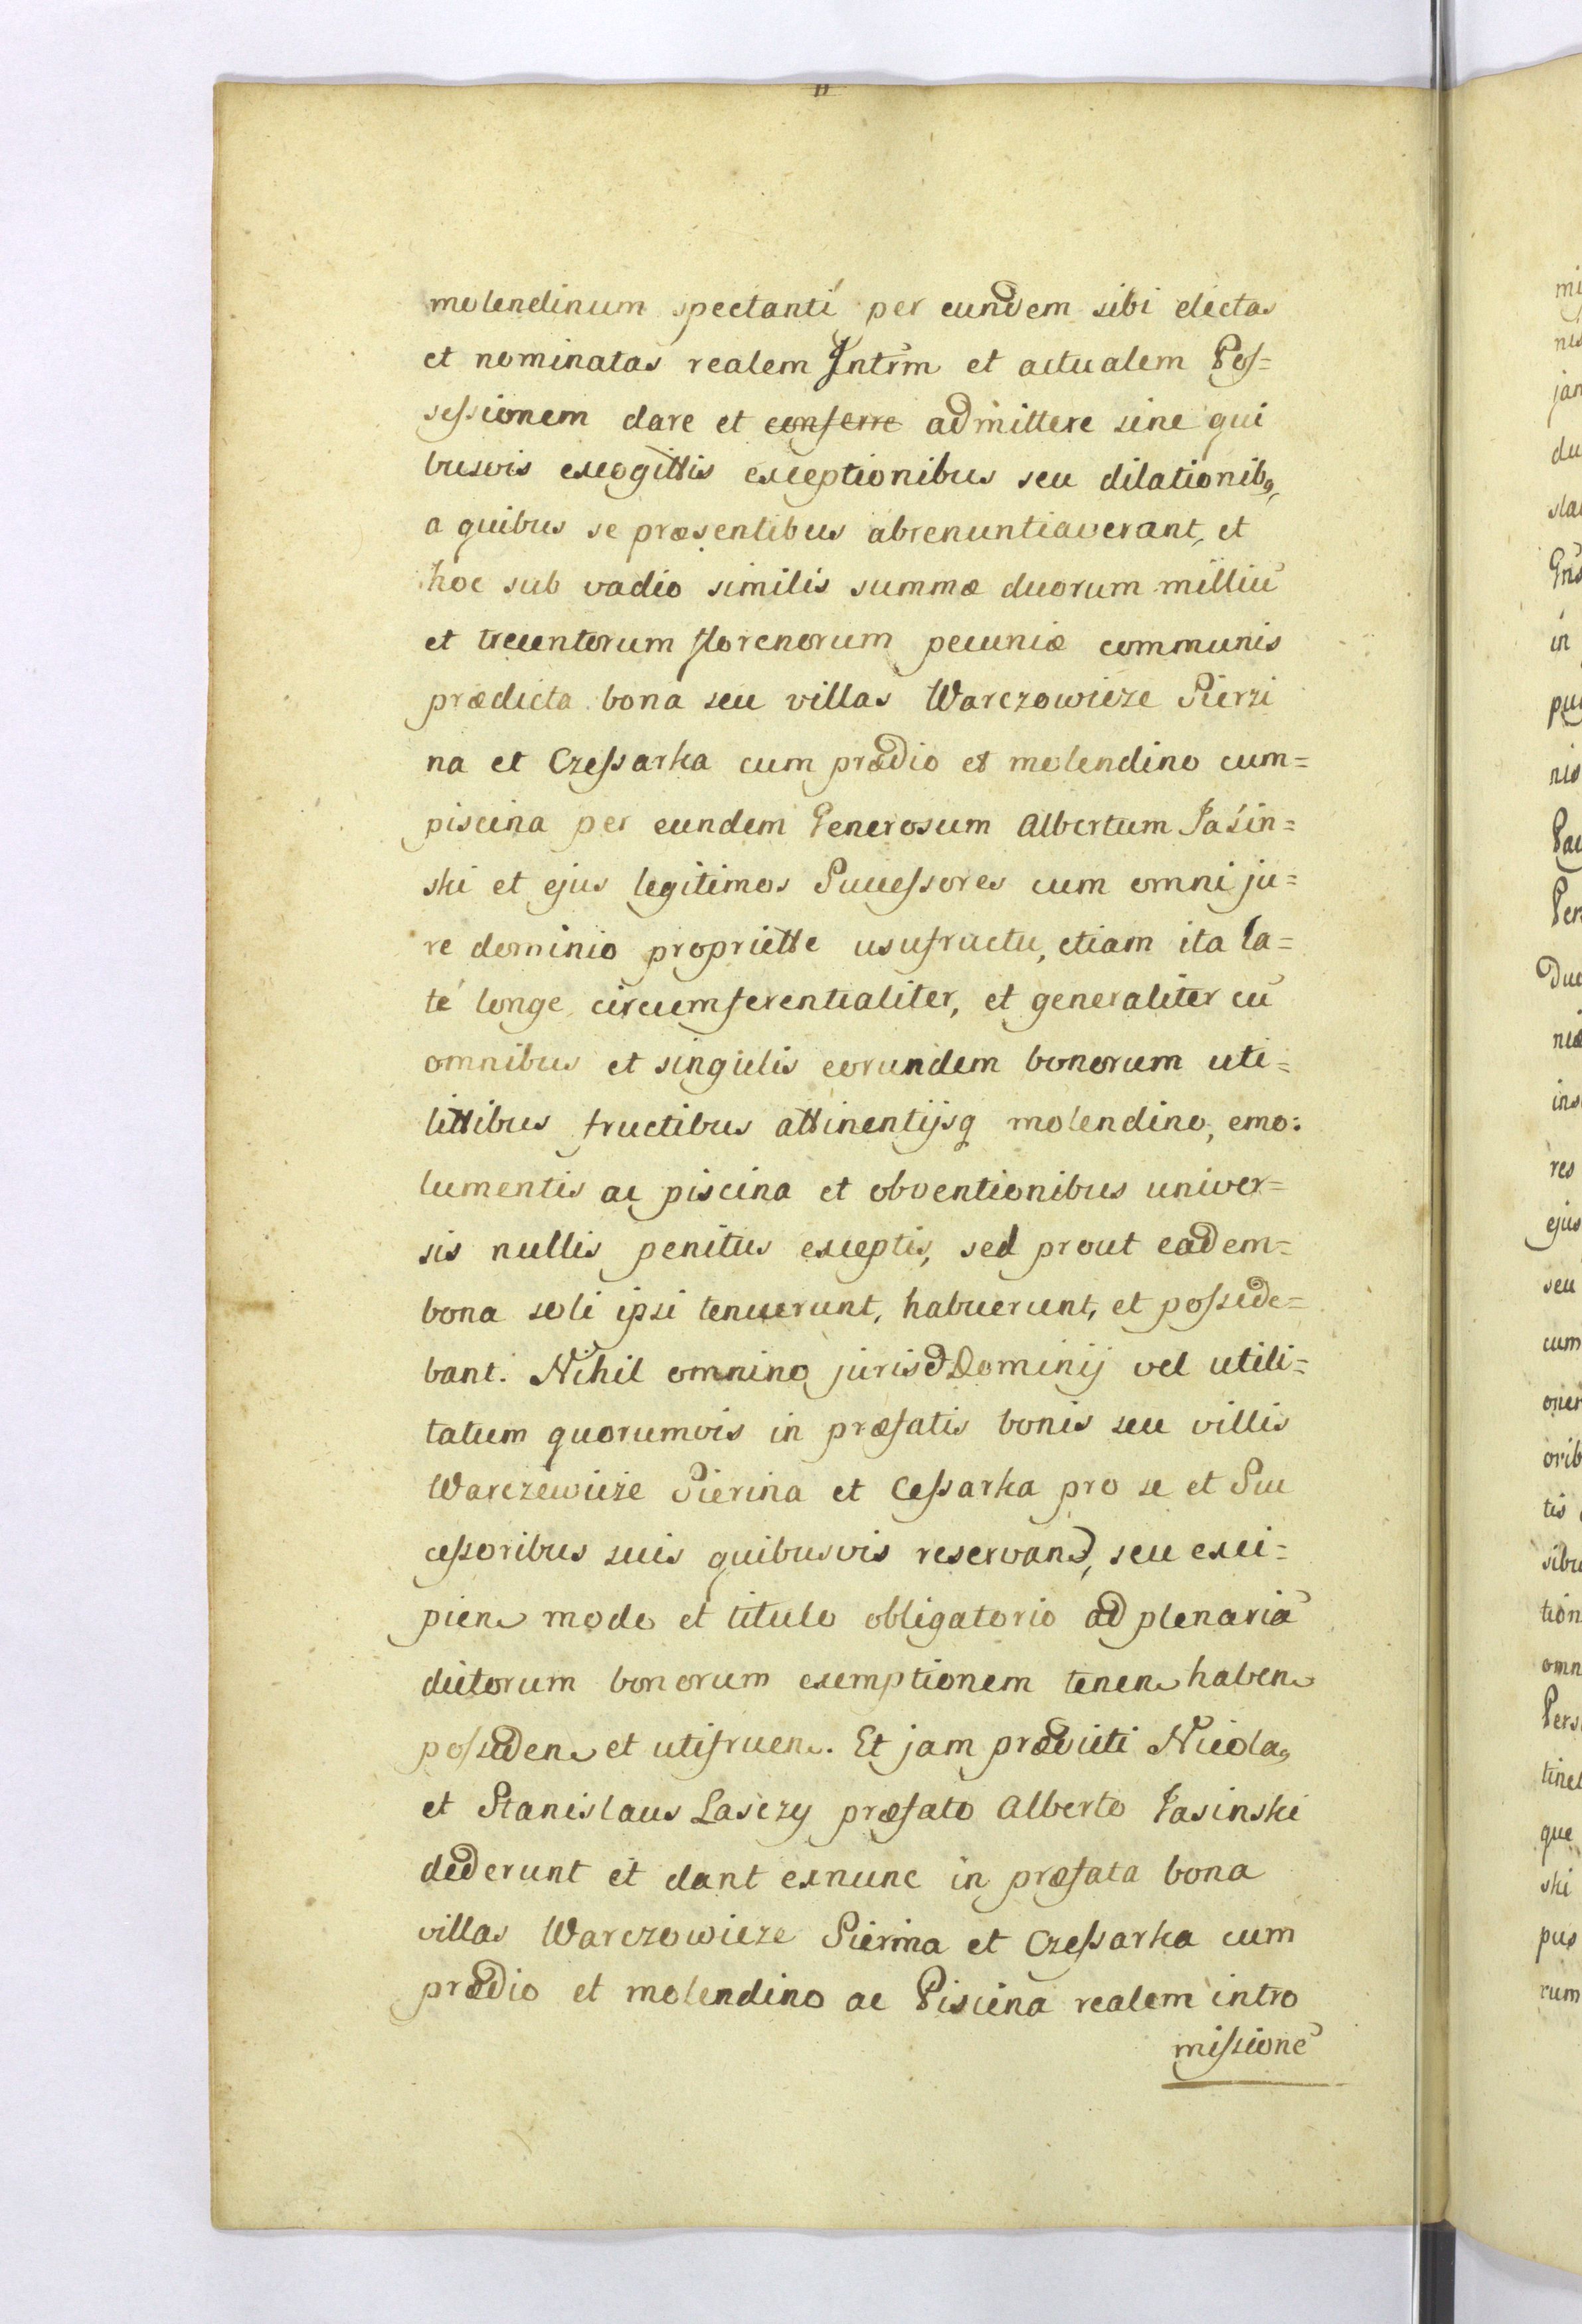 molendinum spectanti per eundem sibi electas
et nominatas realem Intrm et actualem Pos=
sessionem dare et conferre admittere sine qui
busvis excogittis exceptionibus seu dilationibq,
a quibus se præsentibus abrenuntiaverant, et
hoc sub vadio similis summæ duorum milliū
et trecentorum florenorum pecuniæ communis
prædicta bona seu villas Warczowieze Pierzi
na et Czessarka cum prædio et molendino cum=
piscina per eundem Generosum Albertum Jasin=
ski et ejus legitimos Successores cum omni ju=
re dominio propriette usufructu, etiam ita la=
té longe circumferentialiter, et generaliter cū
omnibus et singulis eorundem bonorum uti=
littibus fructibus attinentijsq molendino, emo:
lumentis ac piscina et obventionibus univer=
sis nullis penitus exceptis, sed prout eadem=
bona soli ipsi tenuerunt, habuerunt, et posside=
bant. Nihil omnino juris Dominij vel utili=
tatum quorumvis in præfatis bonis seu villis
Warczewieze Pierina et Cessarka pro se et Suc
cessoribus suis quibusvis reservand, seu exci=
pien modo et titulo obligatorio ad plenariā
dictorum bonorum exemptionem tenen haben
possiden et utifruen. Et jam prædicti Nicola,
et Stanislaus Lasczy præfato Alberto Jasinski
dederunt et dant exnunc in præfata bona
villas Warczowieze Pierina et Czessarka cum
prædio et molendino ac Piscina realem intro
missionē